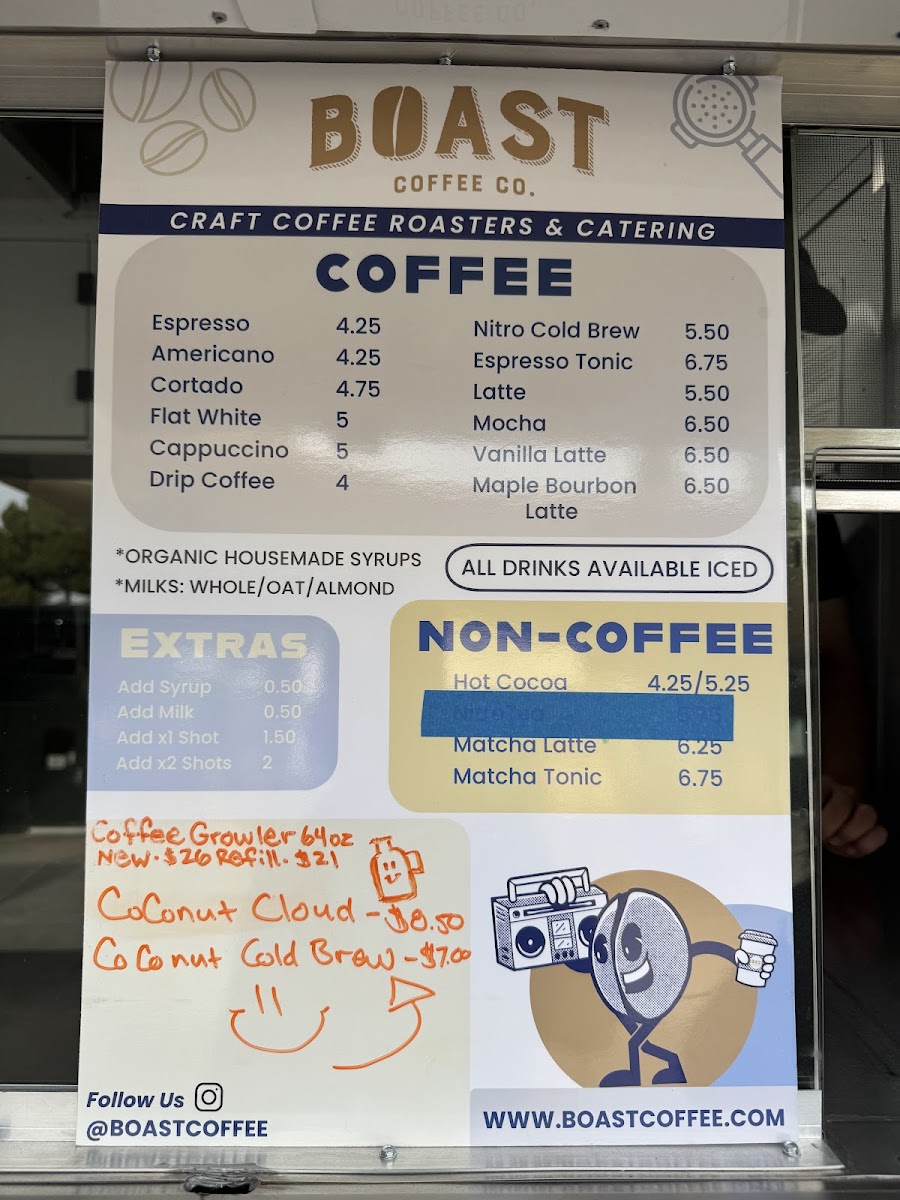 BOAST
COFFEE CO.
CRAFT COFFEE ROASTERS & CATERING
COFFEE
Espresso 4.25
Americano 4.25
Cortado 4.75
Flat White 5
Cappuccino 5
Drip Coffee 4
Nitro Cold Brew 5.50
Espresso Tonic 6.75
Latte 5.50
Mocha 6.50
Vanilla Latte 6.50
Maple Bourbon 6.50
Latte
*ORGANIC HOUSEMADE SYRUPS
*MILKS: WHOLE/OAT/ALMOND
ALL DRINKS AVAILABLE ICED
EXTRAS
Add Syrup 0.50
Add Milk 0.50
Add x1 Shot 1.50
Add x2 Shots 2
NON-COFFEE
Hot Cocoa 4.25/5.25
Matcha Latte 6.25
Matcha Tonic 6.75
Coffee Growler 64oz
New-$26 Refill-$21
CoConut Cloud -$8.50
CoConut Cold Brew -$7.00
Follow Us
@BOASTCOFFEE
WWW.BOASTCOFFEE.COM